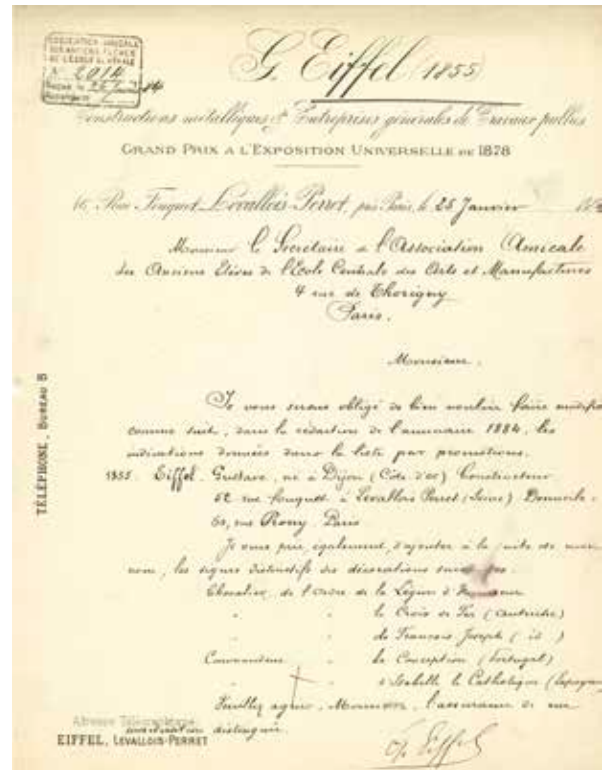 ASSOCIATION AMICALE
DES ANCIENS ÉLÈVES
DE L'ÉCOLE CENTRALE
N° 2014
Reçue le 26
G. Eiffel (1855)
Constructions métalliques & Entreprises générales de Travaux publics
GRAND PRIX A L'EXPOSITION UNIVERSELLE DE 1878
Rue Fouquet Levallois-Perret, près Paris, le 25 Janvier
Monsieur le Secrétaire de l'Association Amicale
des Anciens Elèves de l'Ecole Centrale des Arts et Manufactures
4 rue de Thorigny
Paris.
Monsieur,
Je vous serais obligé de bien vouloir faire modifier
comme suit, dans la rédaction de l'annuaire 1884, les
indications données dans la liste par promotions.
1855 Eiffel Gustave, né à Dijon (Côte d'or) Constructeur
rue fouquet à Levallois Perret (Seine) Domicile
rue Prony Paris
Je vous prie également, d'ajouter à la suite de mon
nom, les signes distinctifs des décorations
Chevalier de l'Ordre de la Légion d'Honneur
" " la Croix de Fer (Autriche)
" " de François Joseph (id)
Commandeur " la Conception (Portugal)
" " d'Isabelle la Catholique (Espagne)
Veuillez agréer, Monsieur, l'assurance de ma
distinguée.
G. Eiffel
TÉLÉPHONE, BUREAU B
Adresse Télégraphique:
EIFFEL, LEVALLOIS-PERRET